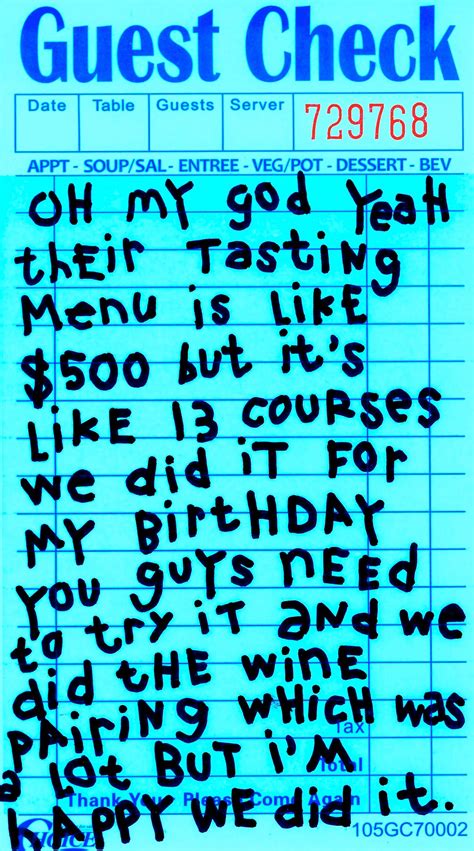 Guest Check
Date Table Guests Server 729768
APPT - SOUP/SAL - ENTREE - VEG/POT - DESSERT - BEV
OH MY god YeaH
thEir Tasting
Menu is LikE
$500 but it's
LikE 13 COURSES
we did iT FOR
MY BirtHDAY
YOU guys NEED
to try iT aND we
did tHE wiNE
PAiriNg wHicH was
Tax
a LOT BUT i'M
Total
HAPPY WE did it.
Thank You Please Come Again
CHOICE 105GC70002